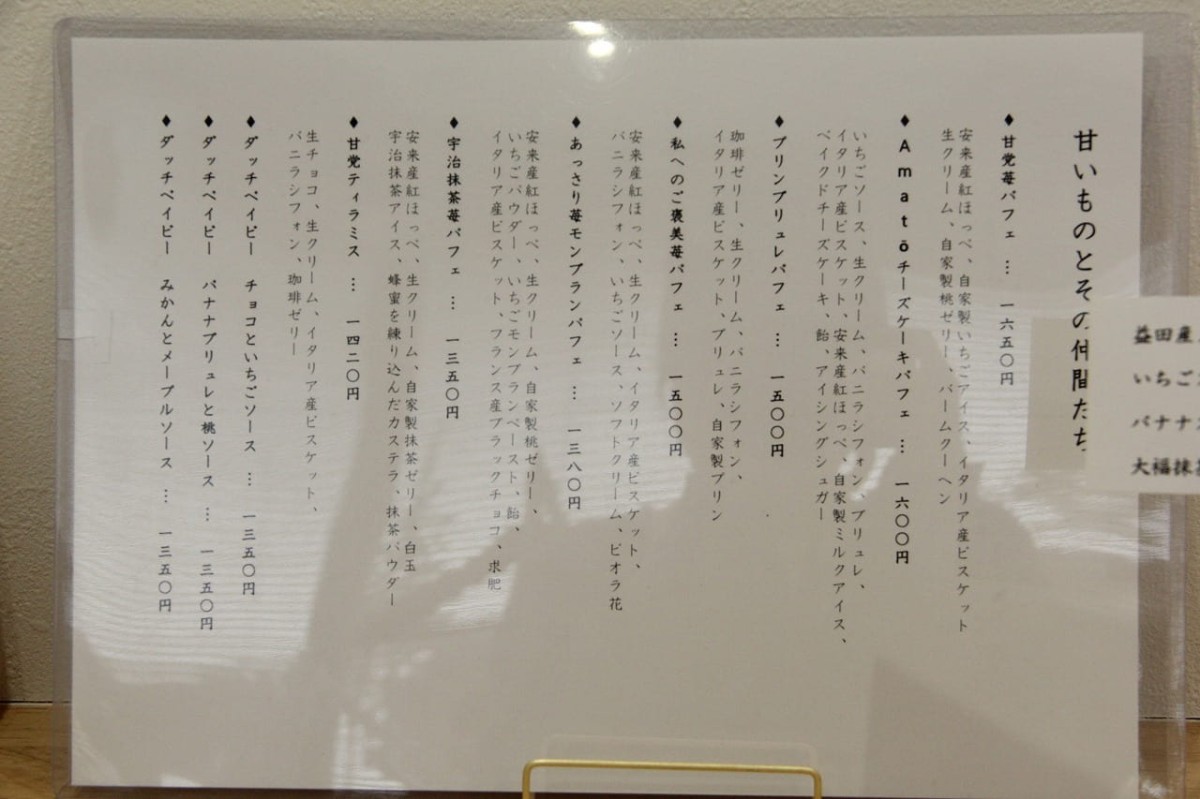 甘いものとその仲間たち
◆甘党苺パフェ … 一六五〇円
安来産紅ほっぺ、自家製いちごアイス、イタリア産ビスケット
生クリーム、自家製桃ゼリー、バームクーヘン
◆Amatōチーズケーキパフェ … 一六〇〇円
いちごソース、生クリーム、バニラシフォン、ブリュレ、
イタリア産ビスケット、安来産紅ほっぺ、自家製ミルクアイス、
ベイクドチーズケーキ、飴、アイシングシュガー
◆プリンブリュレパフェ … 一五〇〇円
珈琲ゼリー、生クリーム、バニラシフォン、
イタリア産ビスケット、ブリュレ、自家製プリン
◆私へのご褒美苺パフェ … 一五〇〇円
安来産紅ほっぺ、生クリーム、イタリア産ビスケット、
バニラシフォン、いちごソース、ソフトクリーム、ビオラ花
◆あっさり苺モンブランパフェ … 一三八〇円
安来産紅ほっぺ、生クリーム、自家製桃ゼリー、
いちごパウダー、いちごモンブランペースト、飴、
イタリア産ビスケット、フランス産ブラックチョコ、求肥
◆宇治抹茶苺パフェ … 一三五〇円
安来産紅ほっぺ、生クリーム、自家製抹茶ゼリー、白玉
宇治抹茶アイス、蜂蜜を練り込んだカステラ、抹茶パウダー
◆甘党ティラミス … 一四二〇円
生チョコ、生クリーム、イタリア産ビスケット、
バニラシフォン、珈琲ゼリー
◆ダッチベイビー チョコといちごソース … 一三五〇円
◆ダッチベイビー バナナブリュレと桃ソース … 一三五〇円
◆ダッチベイビー みかんとメープルソース … 一三五〇円
益田産
いちご
バナナ
大福抹